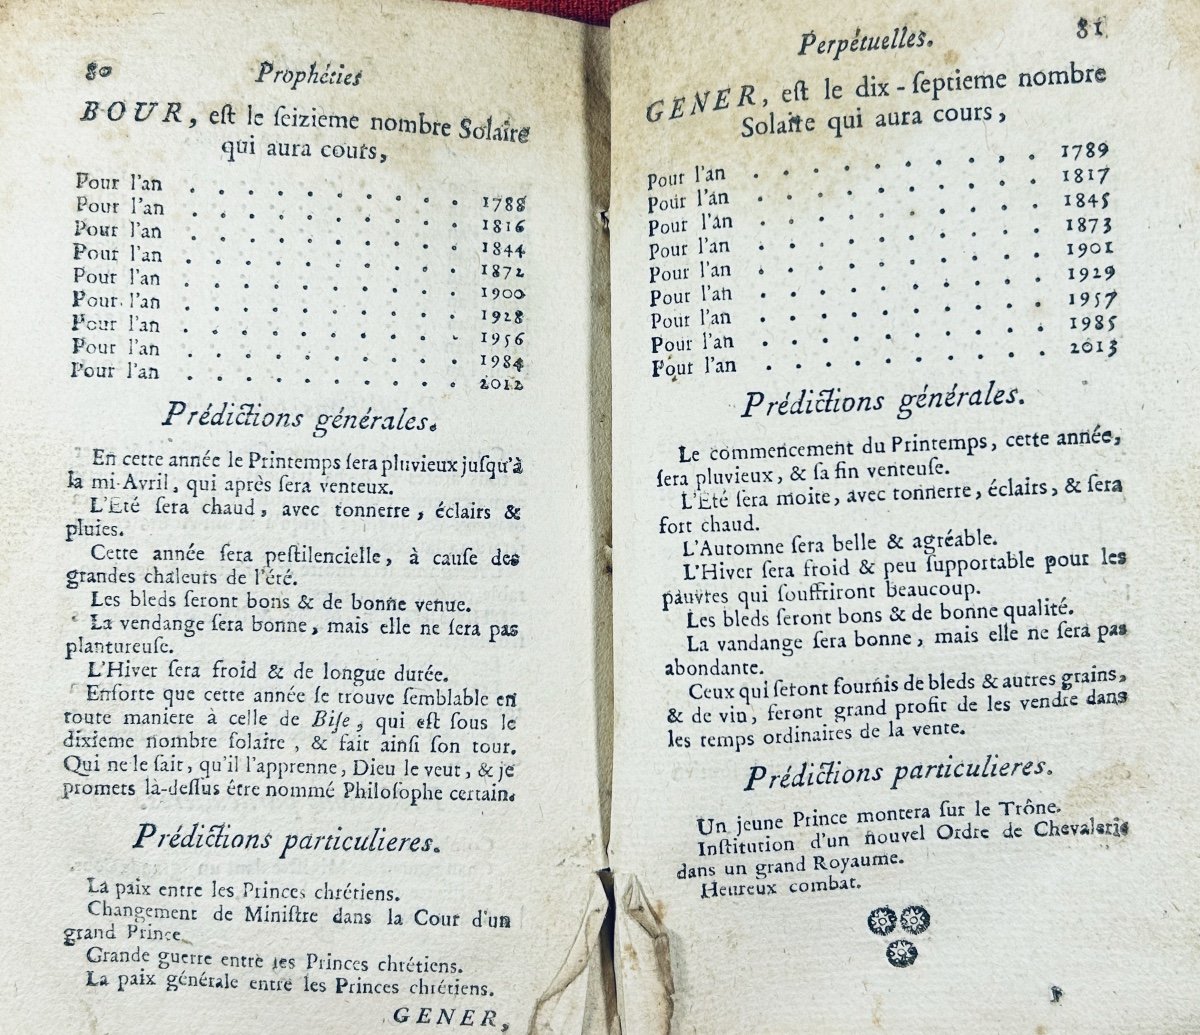 80 Prophéties
BOUR, eſt le ſeizieme nombre Solaire
qui aura cours,
Pour l'an . . . . . . . . . 1788
Pour l'an . . . . . . . . . 1816
Pour l'an . . . . . . . . . 1844
Pour l'an . . . . . . . . . 1872
Pour l'an . . . . . . . . . 1900
Pour l'an . . . . . . . . . 1928
Pour l'an . . . . . . . . . 1956
Pour l'an . . . . . . . . . 1984
Pour l'an . . . . . . . . . 2012
Prédictions générales.
En cette année le Printemps ſera pluvieux juſqu'à
la mi-Avril, qui après ſera venteux.
L'Eté ſera chaud, avec tonnerre, éclairs &
pluies.
Cette année ſera peſtilencielle, à cauſe des
grandes chaleurs de l'été.
Les bleds ſeront bons & de bonne venue.
La vendange ſera bonne, mais elle ne ſera pas
plantureuſe.
L'Hiver ſera froid & de longue durée.
Enſorte que cette année ſe trouve ſemblable en
toute maniere à celle de Biſe, qui eſt ſous le
dixieme nombre ſolaire, & fait ainſi ſon tour.
Qui ne le ſait, qu'il l'apprenne, Dieu le veut, & je
promets là-deſſus être nommé Philoſophe certain.
Prédictions particulieres.
La paix entre les Princes chrétiens.
Changement de Miniſtre dans la Cour d'un
grand Prince
Grande guerre entre les Princes chrétiens.
La paix générale entre les Princes chrétiens.
GENER,
Perpétuelles. 81
GENER, eſt le dix-ſeptieme nombre
Solaire qui aura cours,
Pour l'an . . . . . . . . . 1789
Pour l'an . . . . . . . . . 1817
Pour l'an . . . . . . . . . 1845
Pour l'an . . . . . . . . . 1873
Pour l'an . . . . . . . . . 1901
Pour l'an . . . . . . . . . 1929
Pour l'an . . . . . . . . . 1957
Pour l'an . . . . . . . . . 1985
Pout l'an . . . . . . . . . 2013
Prédictions générales.
Le commencement du Printemps, cette année,
ſera pluvieux, & ſa fin venteuſe.
L'Eté ſera moite, avec tonnerre, éclairs, & ſera
fort chaud.
L'Automne ſera belle & agréable.
L'Hiver ſera froid & peu ſupportable pour les
pauvres qui ſouffriront beaucoup.
Les bleds ſeront bons & de bonne qualité.
La vandange ſera bonne, mais elle ne ſera pas
abondante.
Ceux qui ſeront fournis de bleds & autres grains,
& de vin, feront grand profit de les vendre dans
les temps ordinaires de la vente.
Prédictions particulieres.
Un jeune Prince montera ſur le Trône.
Inſtitution d'un nouvel Ordre de Chevalerie
dans un grand Royaume.
Heureux combat.